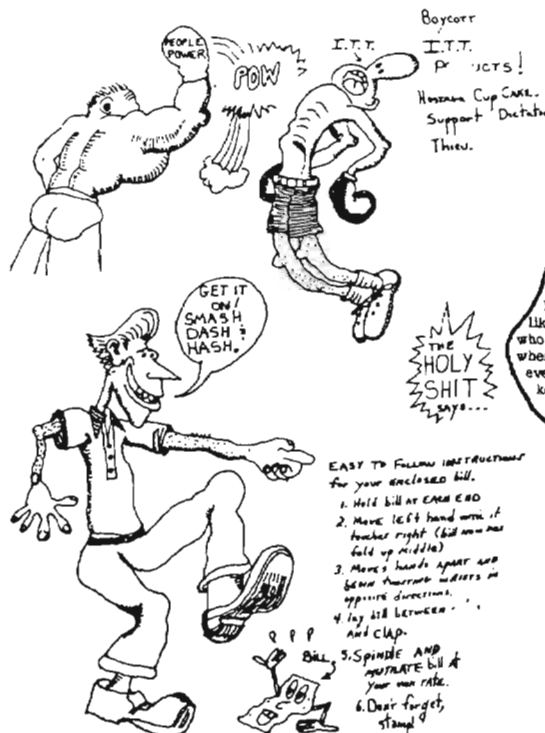 PEOPLE
POWER
POW
I.T.T.
Boycott
I.T.T.
P UCTS!
Hostess Cup Cake.
Support Dictat
Thieu.
GET IT
ON!
SMASH
DASH &
HASH.
lik
who
whe
eve
k
THE
HOLY
SHIT
SAYS...
EASY TO FOLLOW INSTRUCTIONS
for your enclosed bill.
1. Hold bill AT EACH END
2. Move left hand until it
touches right (bill now has
fold up middle)
3. Moves hands APART AND
begin twisting wrists in
opposite directions.
4. lay bill between
AND clap.
5. SPINDLE AND
MUTILATE bill at
your own rate.
6. Don't forget,
stamp!
? ? ?
BILL